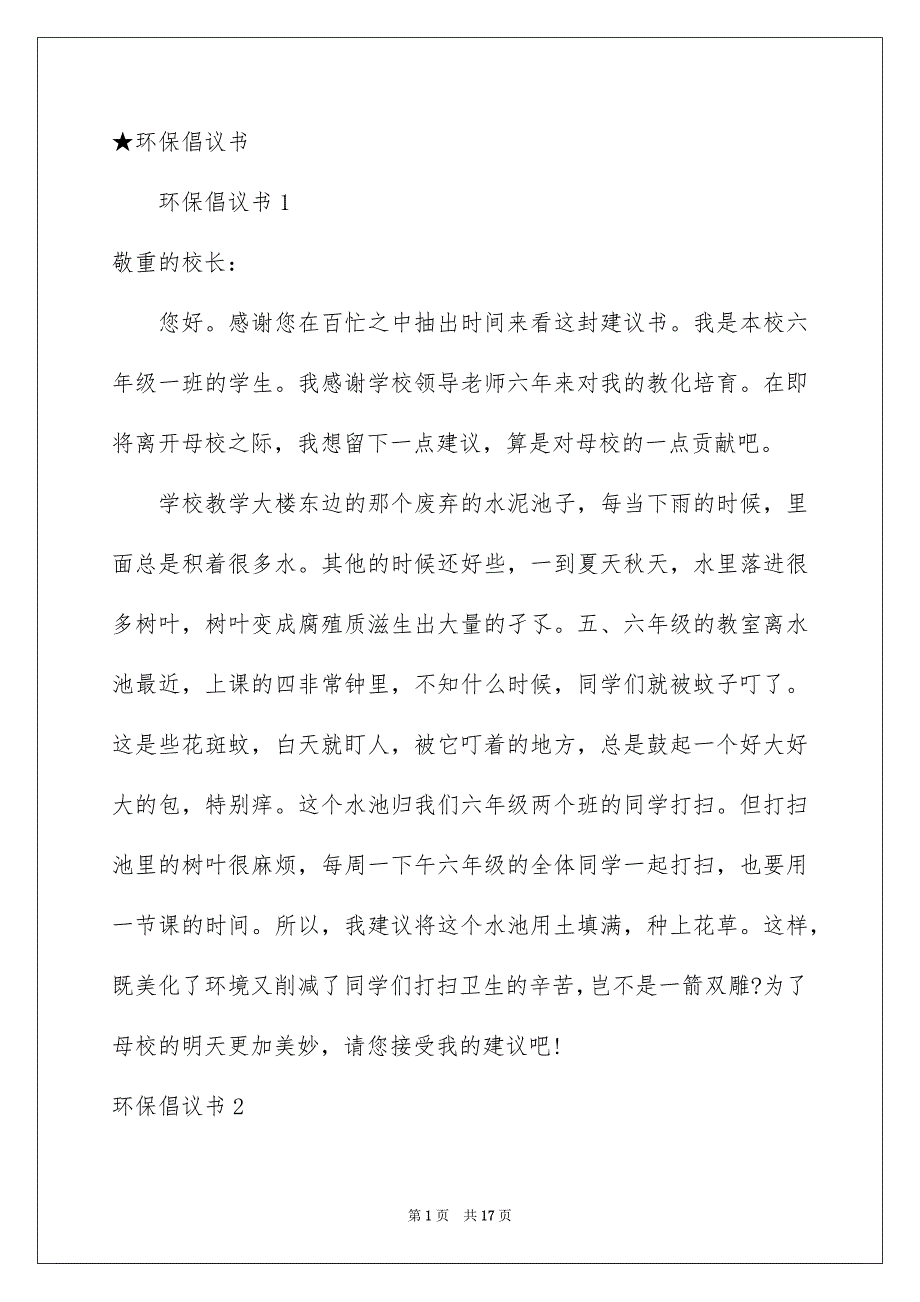 ★环保倡议书
环保倡议书 1
敬重的校长：
您好。感谢您在百忙之中抽出时间来看这封建议书。我是本校六
年级一班的学生。我感谢学校领导老师六年来对我的教化培育。在即
将离开母校之际，我想留下一点建议，算是对母校的一点贡献吧。
学校教学大楼东边的那个废弃的水泥池子，每当下雨的时候，里
面总是积着很多水。其他的时候还好些，一到夏天秋天，水里落进很
多树叶，树叶变成腐殖质滋生出大量的孑孓。五、六年级的教室离水
池最近，上课的四非常钟里，不知什么时候，同学们就被蚊子叮了。
这是些花斑蚊，白天就盯人，被它叮着的地方，总是鼓起一个好大好
大的包，特别痒。这个水池归我们六年级两个班的同学打扫。但打扫
池里的树叶很麻烦，每周一下午六年级的全体同学一起打扫，也要用
一节课的时间。所以，我建议将这个水池用土填满，种上花草。这样，
既美化了环境又削减了同学们打扫卫生的辛苦，岂不是一箭双雕?为了
母校的明天更加美妙，请您接受我的建议吧!
环保倡议书 2
第 1 页 共 17 页